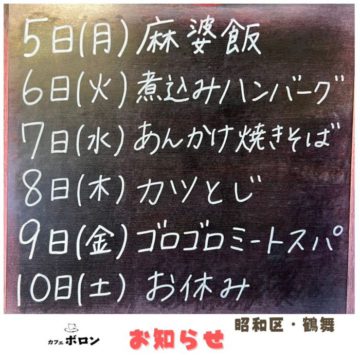 5日(月)麻婆飯
6日(火)煮込みハンバーグ
7日(水)あんかけ焼きそば
8日(木)カツとじ
9日(金)ゴロゴロミートスパ
10日(土)お休み
昭和区・鶴舞
カフェ ボロン
お知らせ